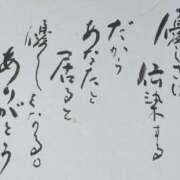 優しさは
伝染する
だから
あなたと
居ると
優しくなれる。
ありがとう